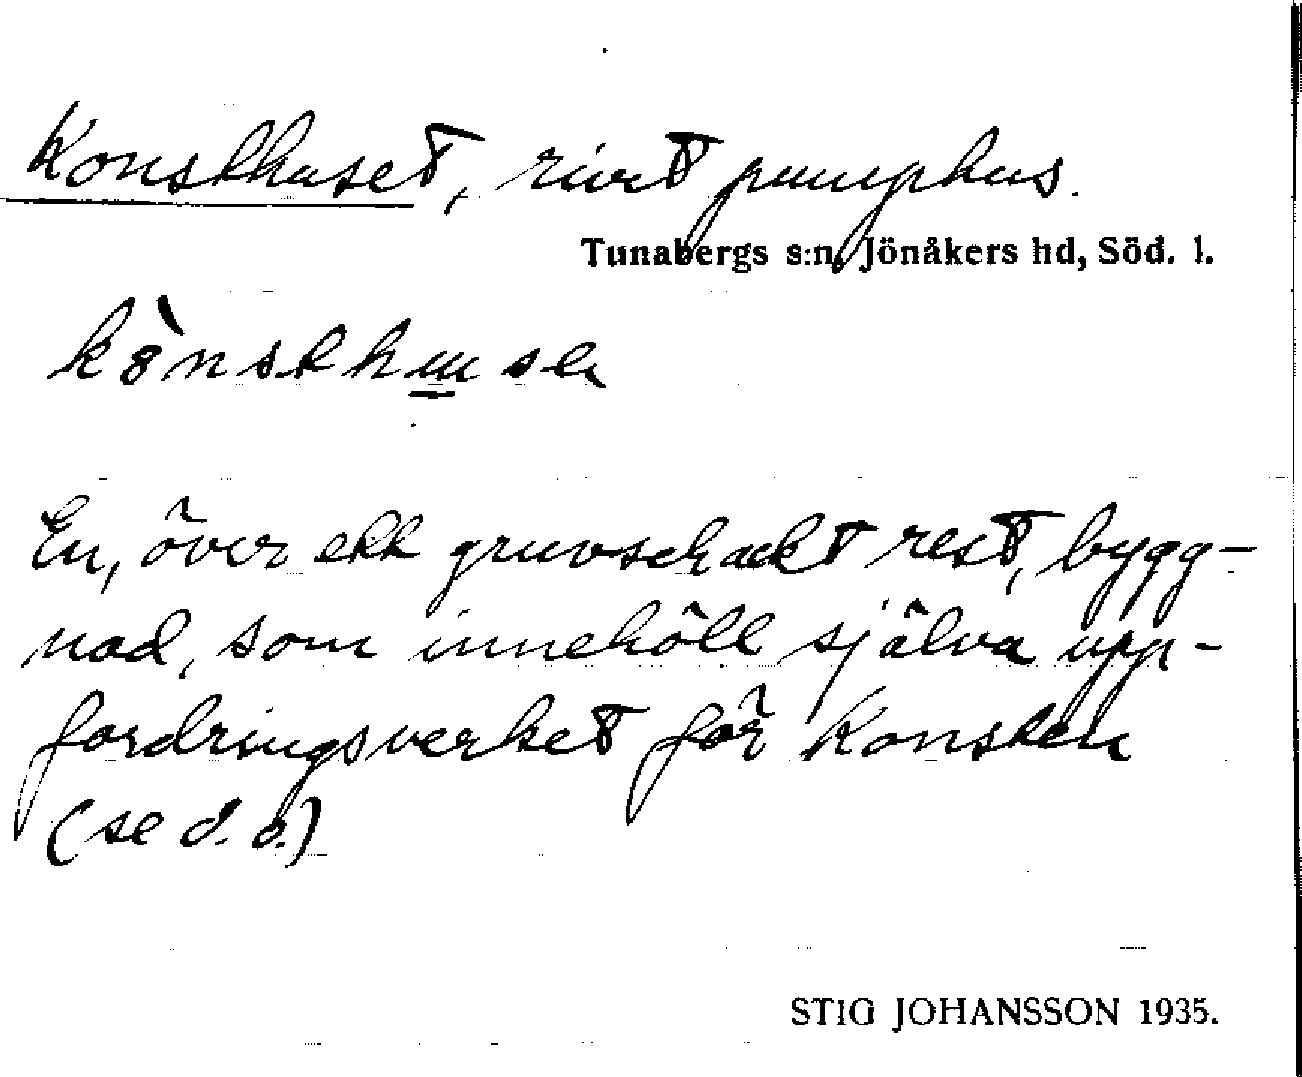 Konsthuset, rivet pumphus.
Tunabergs s:n, Jönåkers hd, Söd. l.
kònsthuse
En, över ett gruvschackt rest, bygg-
nad, som innehöll själva upp-
fordringsverket för Konsten
(se d. o.)
STIG JOHANSSON 1935.